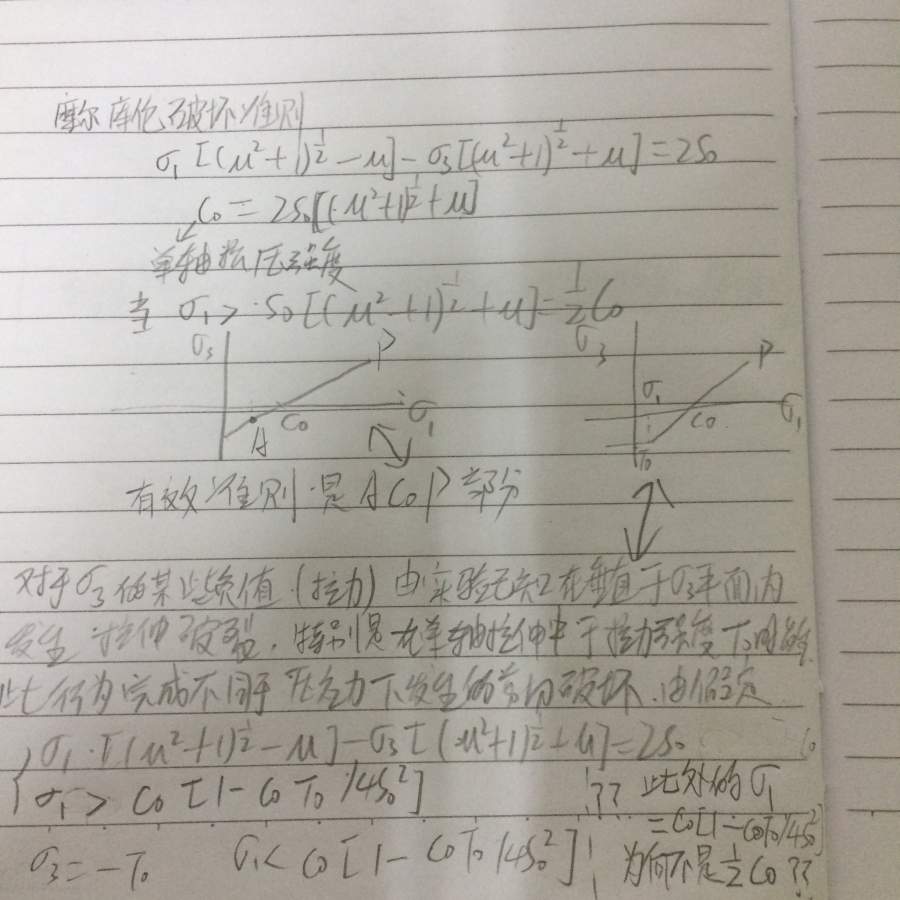 摩尔库伦破坏准则
σ₁[(μ²+1)^½-μ]-σ₃[(μ²+1)^½+μ]=2S₀
C₀=2S₀[(μ²+1)^½+μ]
单轴抗压强度
当 σ₁>S₀[(μ²+1)^½+μ]=½C₀
σ₃ P A C₀ σ₁
σ₃ P σ₁ C₀ σ₁ T₀
有效准则是AC₀P部分
对于σ₃的某些负值(拉力)由实验已知在垂直于σ₃平面内
发生拉伸破裂.特别是在单轴拉伸中于拉力强度T₀
此行为完成不同于压力下发生的剪切破坏.由假定
σ₁·[(μ²+1)^½-μ]-σ₃[(μ²+1)^½+μ]=2S₀
σ₁>C₀[1-C₀T₀/4S₀²]
σ₃=-T₀ σ₁<C₀[1-C₀T₀/4S₀²]
?? 此处的σ₁
=C₀[1-C₀T₀/4S₀²]
为何不是½C₀??